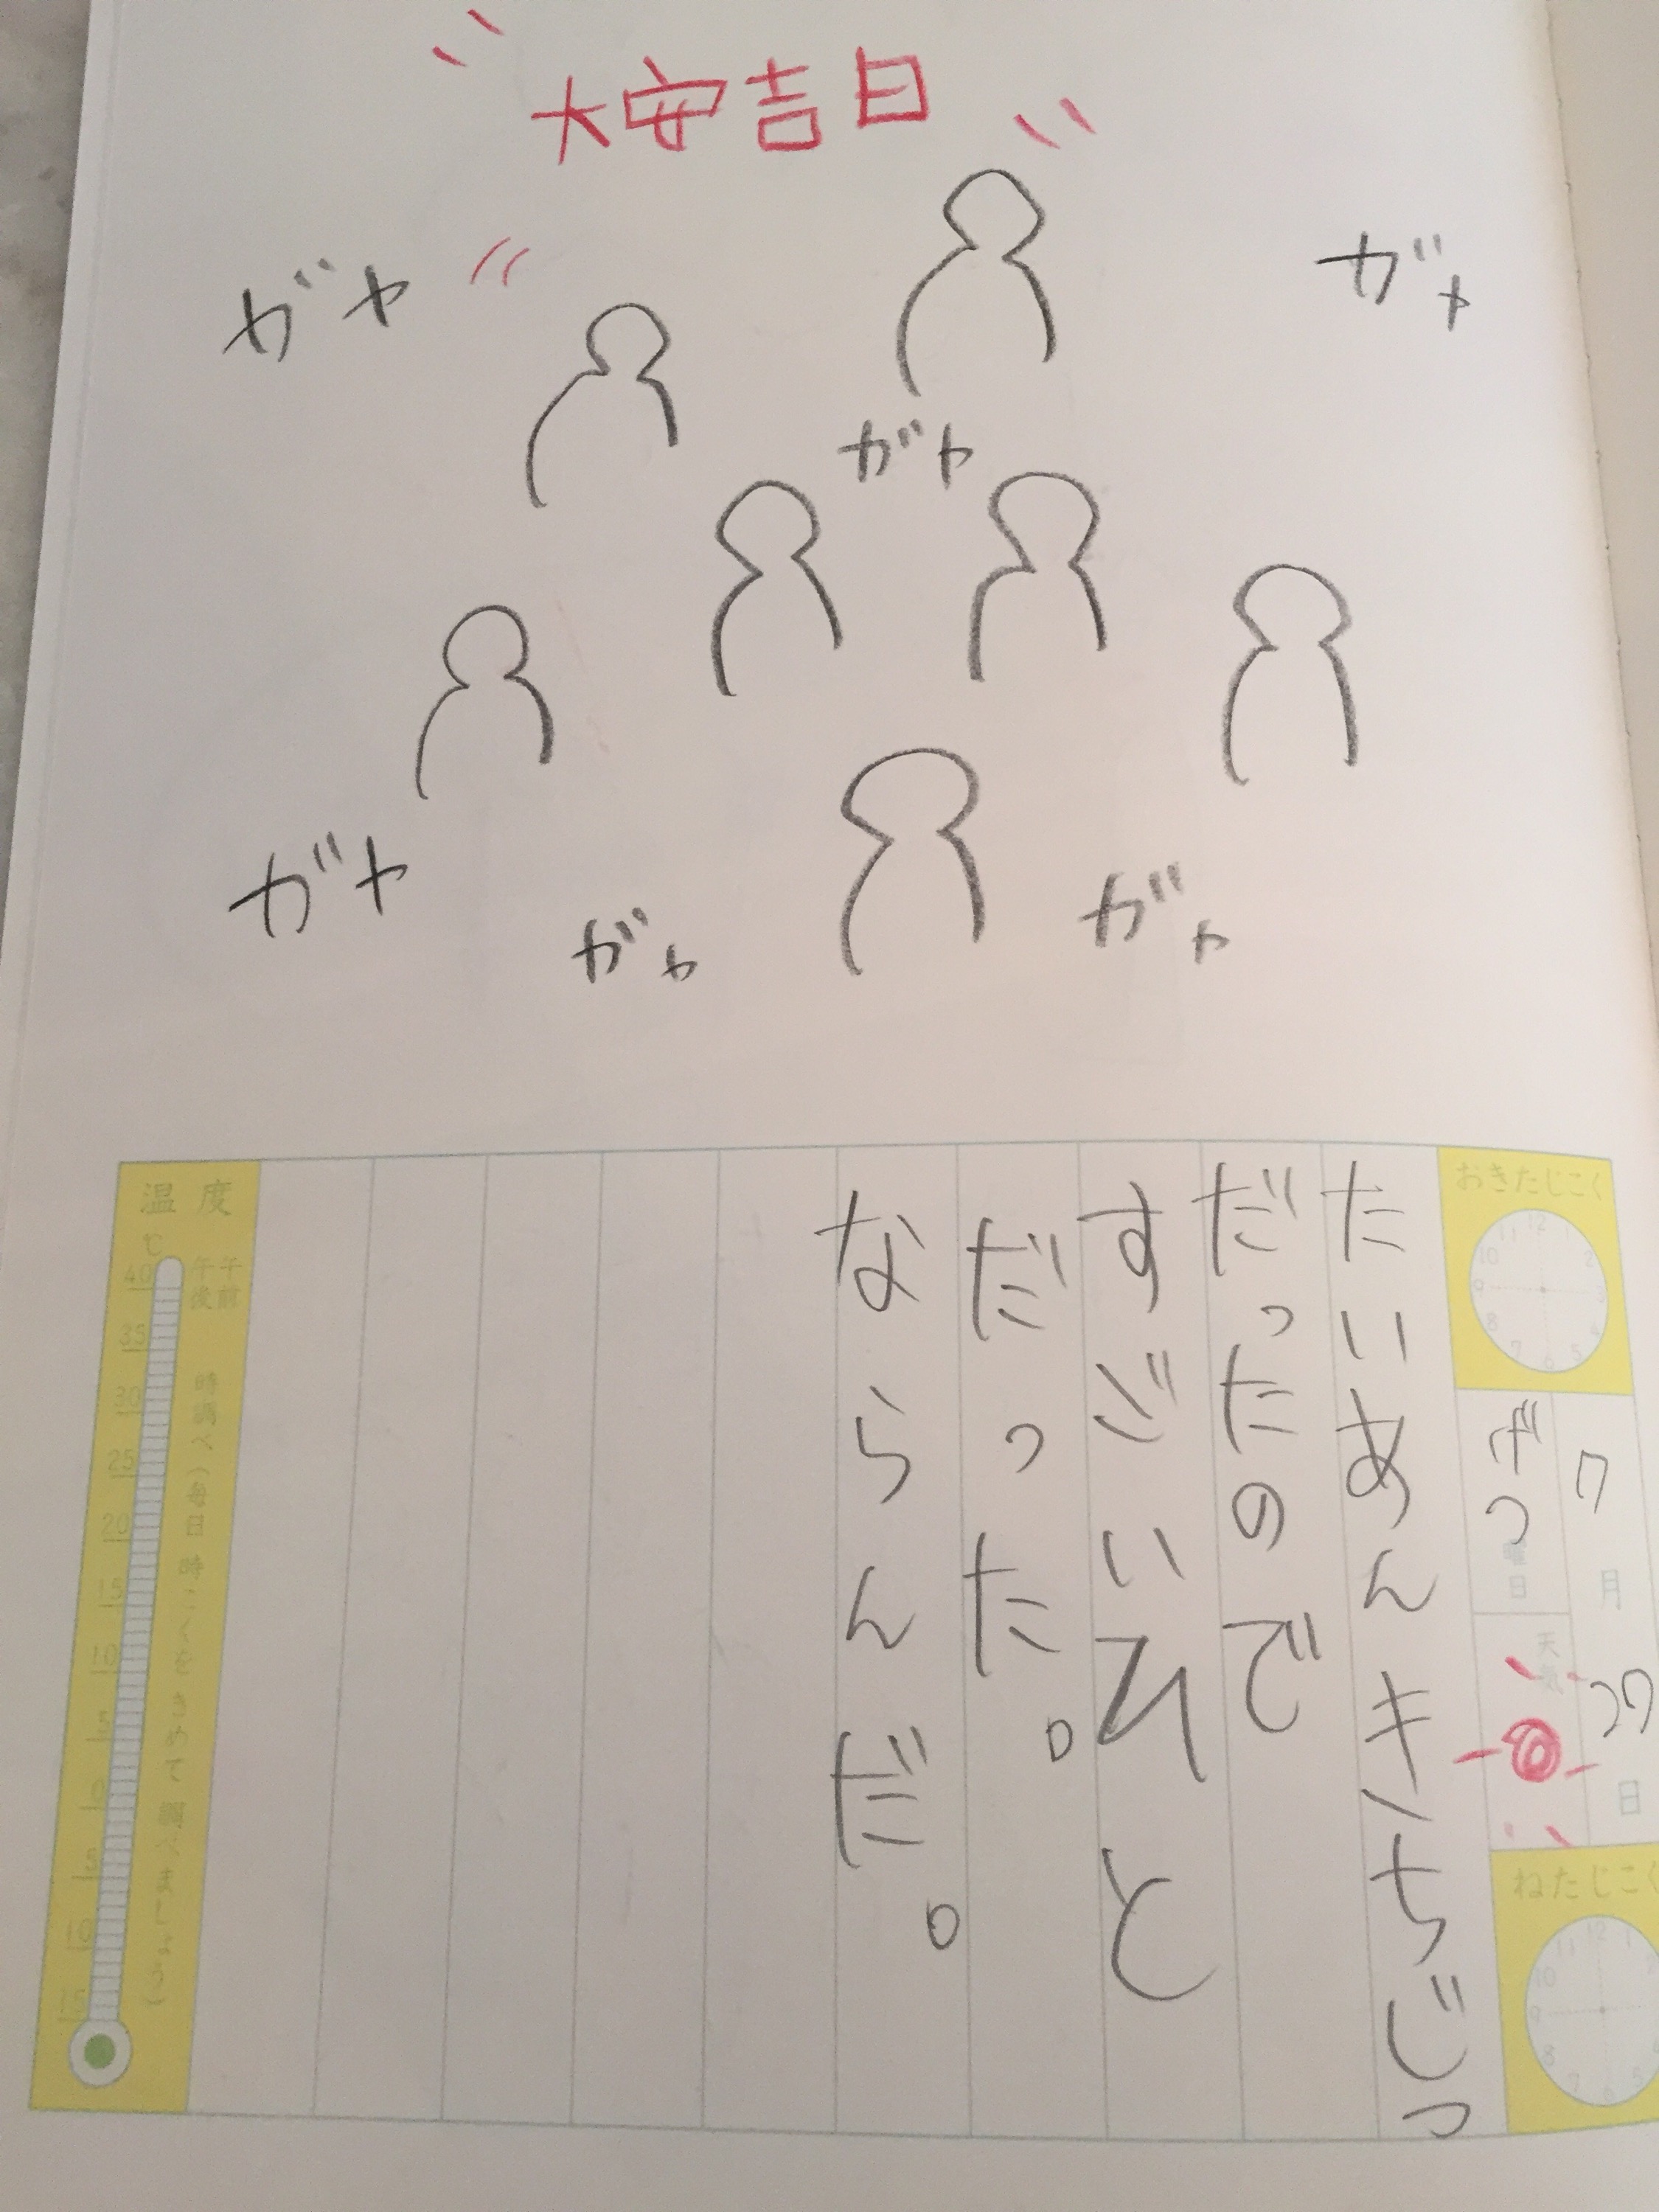 大安吉日
ガヤ
ガヤ
ガヤ
ガヤ
ガヤ
ガヤ
おきたじこく
7月27日
げつ曜日
天気
ねたじこく
たいあんきちじつ
だったので
すごいひと
だった。
ならんだ。
温度
℃
午前
午後
時調べ(毎日 時こくをきめて調べましょう)
40
35
30
25
20
15
10
5
0
5
10
15